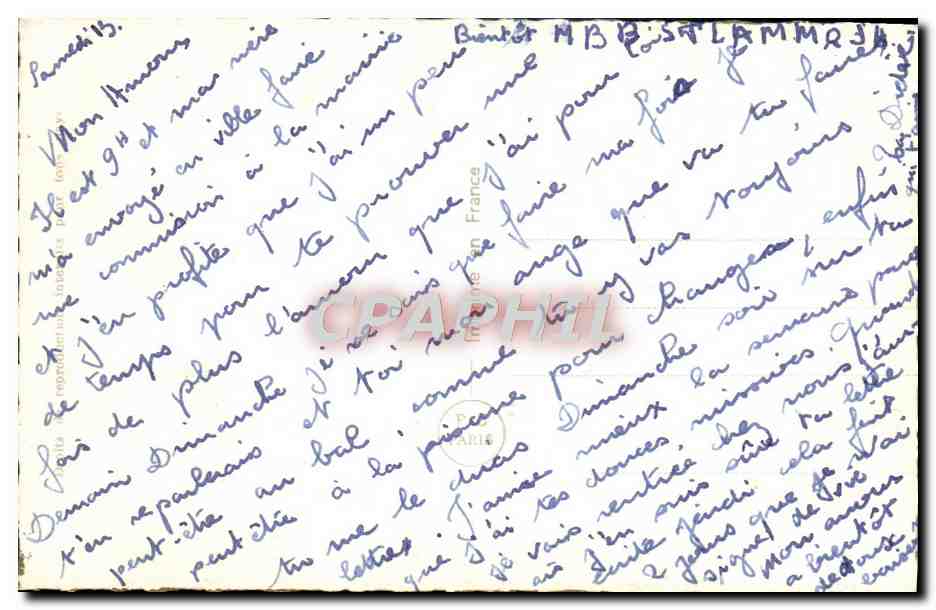 Samedi 13.
Bientôt
Mon Amour
Il est 9H et ma mère
m'a envoyé en ville faire
une commission à la mairie
et j'en profite que j'ai un peu
de temps pour te prouver une
fois de plus l'amour que j'ai pour toi
Demain Dimanche je ne sais que faire ma foi je
t'en reparlerais et toi mon ange que va tu faire
peut-être au bal comme tu y vas toujours
peut être à la piscine pour changer, enfin
tu me le diras Dimanche soir sur ta
lettre. J'aime mieux la semaine parce
que j'ai tes douces missives. Quand
je vais rentrer chez nous j'aurais
J'en suis sûre ta lettre
écrite jeudi cela fait
2 jours que je
signe de vie
Mon amour
à bientôt
de doux
baisers
Imprimé en France
Droits de reproduction interdits pour tous pays
PARIS
CPARPHIL